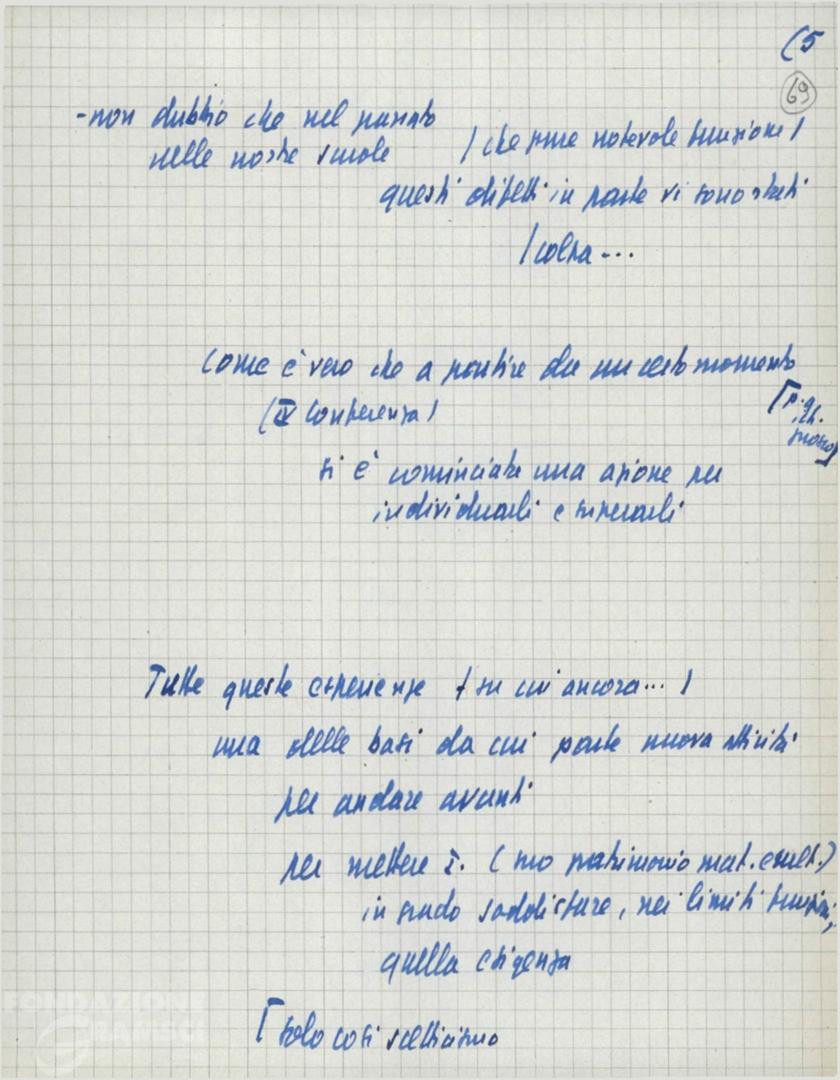 (5
69
-non dubbio che nel passato
nelle nostre scuole / che pure notevole funzione /
questi difetti in parte vi sono stati
/ colpa...
Come è vero che a partire da un certo momento
(IV Conferenza)
si è cominciata una azione per
individuarli e superarli
Tutte queste esperienze / su cui ancora... /
una delle basi da cui parte nuova attività
per andare avanti
per mettere I. (suo patrimonio mat. e cult.)
in grado soddisfare, nei limiti funzioni,
quella esigenza
[ solo così scetticismo
FONDAZIONE
GRAMSCI